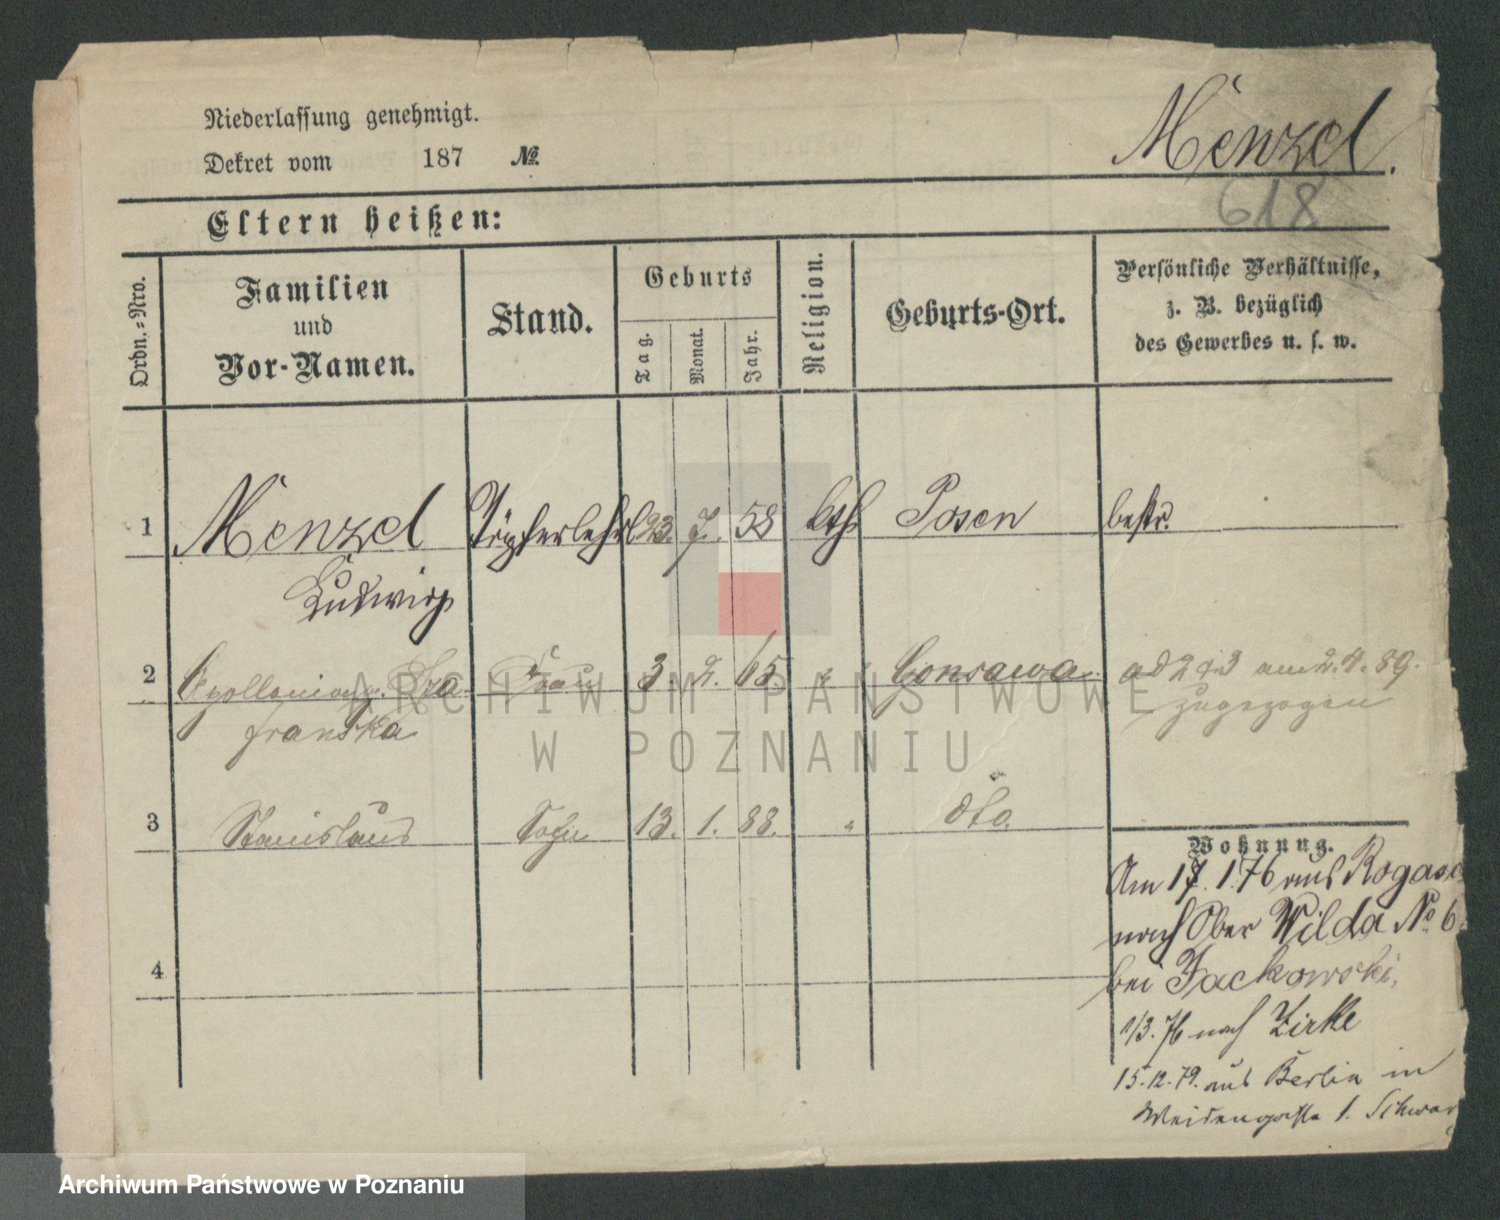 Niederlassung genehmigt.
Dekret vom 187 №
Menzel.
618
Eltern heißen:
Ordn.=Nro.
Familien
und
Vor-Namen.
Stand.
Geburts
Tag.
Monat.
Jahr.
Religion.
Geburts-Ort.
Persönliche Verhältnisse,
z. B. bezüglich
des Gewerbes u. s. w.
1 Menzel Töpferlehrl 23. 7. 58 kth Posen bestr.
Ludwig
2 Apollonia Frau 3 2. 65. " Gonsawa ad 2 & 3 am 2.4.89.
franska zugezogen
3 Stanislaus Sohn 13. 1. 88. " dto.
Wohnung.
Am 17. 1. 76 aus Rogas
nach Ober Wilda № 6.
bei Jackowski,
1/3. 76 nach Zirke
15.12.79. aus Berlin in
Weidengasse 1. Schwar
4
ARCHIWUM PAŃSTWOWE
W POZNANIU
Archiwum Państwowe w Poznaniu